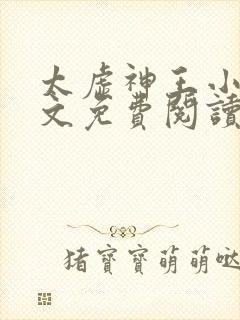 太虛神王小
文免費閱讀
猪寳寳萌萌哒